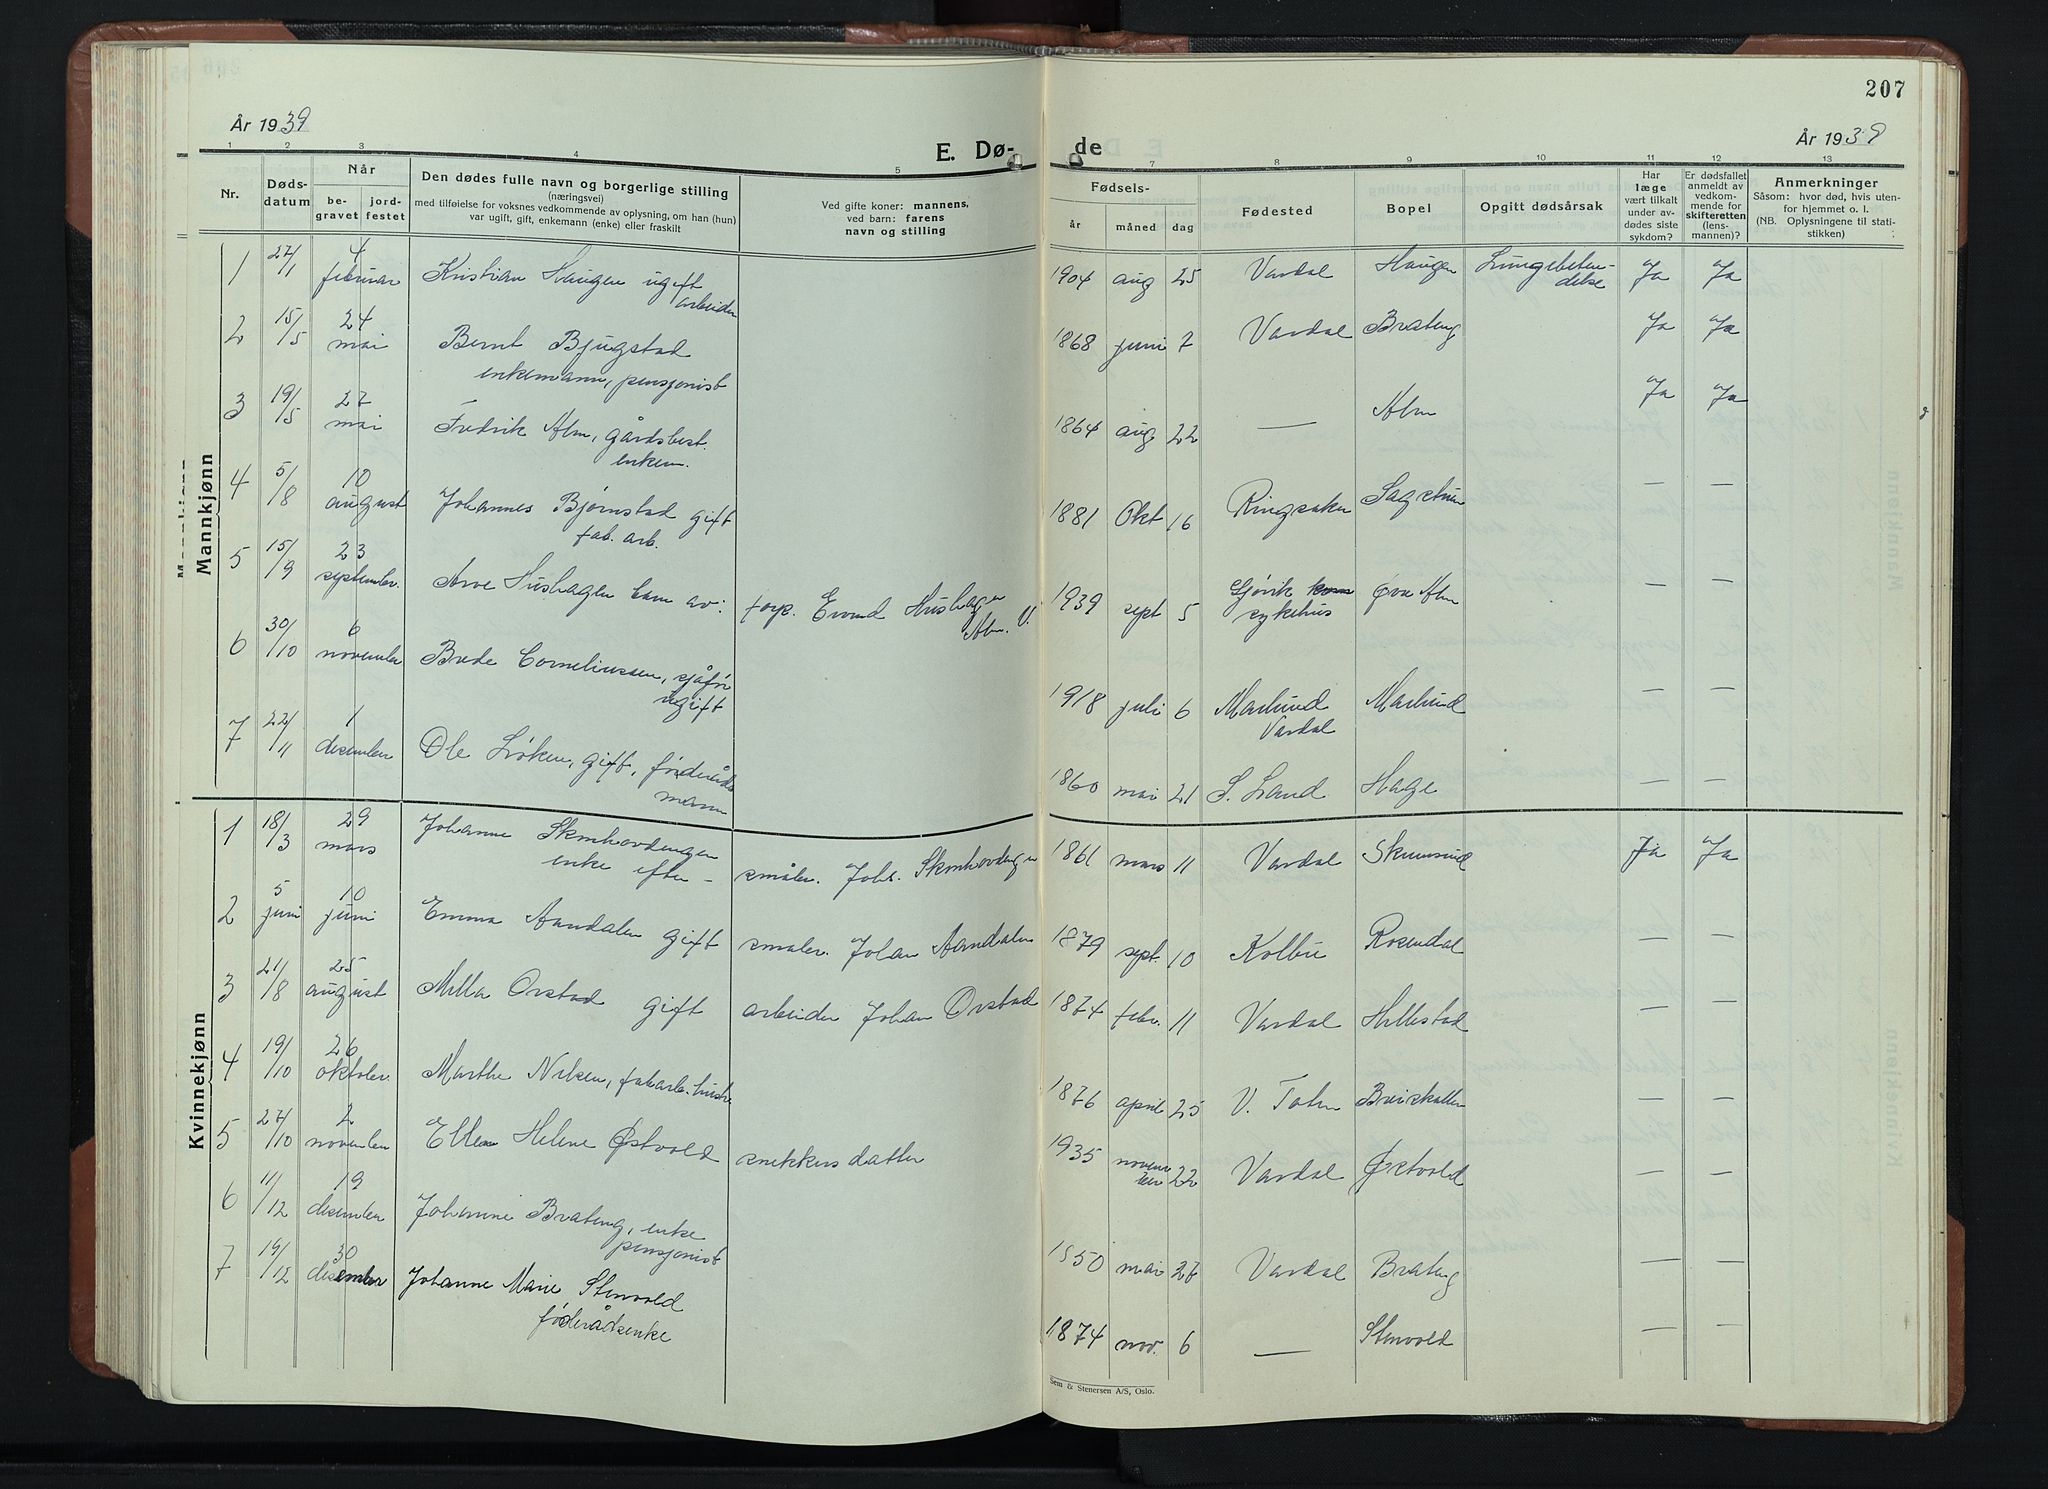 207
År 1939
E. Dø-
de
År 1939
1 2 3 4 5 7 8 9 10 11 12 13
Nr.
Døds-
datum
Når
be-
gravet
jord-
festet
Den dødes fulle navn og borgerlige stilling
(næringsvei)
med tilføielse for voksnes vedkommende av oplysning, om han (hun)
var ugift, gift, enkemann (enke) eller fraskilt
Ved gifte koner: mannens,
ved barn: farens
navn og stilling
Fødsels-
år måned dag
Fødested
Bopel
Opgitt dødsårsak
Har
læge
vært tilkalt
under av-
dødes siste
sykdom?
Er dødsfallet
anmeldt av
vedkom-
mende for
skifteretten
(lens-
mannen)?
Anmerkninger
Såsom: hvor død, hvis uten-
for hjemmet o. l.
(NB. Oplysningene til stati-
stikken)
Mannkjønn
1 27/1 4 februar Kristian Haugen ugift
arbeider
1904 aug 25 Vardal Haugen Lungebeten-
delse Ja Ja
2 15/5 24 mai Bernt Bjugstad
enkemann, pensjonist
1868 juni 7 Vardal Brateng Ja Ja
3 19/5 27 mai Fredrik Alm, gårdsbest.
enkem.
1864 aug 22 — Alm Ja Ja
4 5/8 10 august Johannes Bjørnstad gift
fab. arb.
1881 Okt 16 Ringsaker Sagstuen — —
5 15/9 23 september Arve Hushagen barn av: forp. Hushagen
Alm. V.
1939 sept 5 Gjøvik
sykehus Øvre Alm — —
6 30/10 6 november Brede Corneliussen, sjåfør
ugift
1918 juli 6 Marlund
Vardal Marlund — —
7 22/11 1 desember Ole Løken, gift, føderåds
mann
1860 mai 21 S. Land Hage — —
Kvinnekjønn
1 18/3 29 mars Johanne Skonhovdengen
enke efter — småbr. Johs. Skonhovdengen
1861 mars 11 Vardal Ja Ja
2 5 juni 10 juni Emma Aandalen gift småbr. Johan Aandalen
1879 sept. 10 Kolbu Rosendal — —
3 21/8 25 august Milla Orstad gift arbeider Johan Orstad
1874 febr. 11 Vardal Hillestad — —
4 19/10 26 oktober Marthe Nilsen, fabarb. hustru
1876 april 25 V. Toten Breiskallen — —
5 27/10 2 november Ellen Helene Østvold snekkers datter
1935 novem
ber 22 Vardal Østvold — —
6 11/12 19 desember Johanne Brateng, enke
pensjonist
1850 mai 27 Vardal Brateng — —
7 19/12 30 desember Johanne Marie Stenvold
føderådsenke
1874 nov. 6 — Stenvold — —
Sem & Stenersen A/S, Oslo.